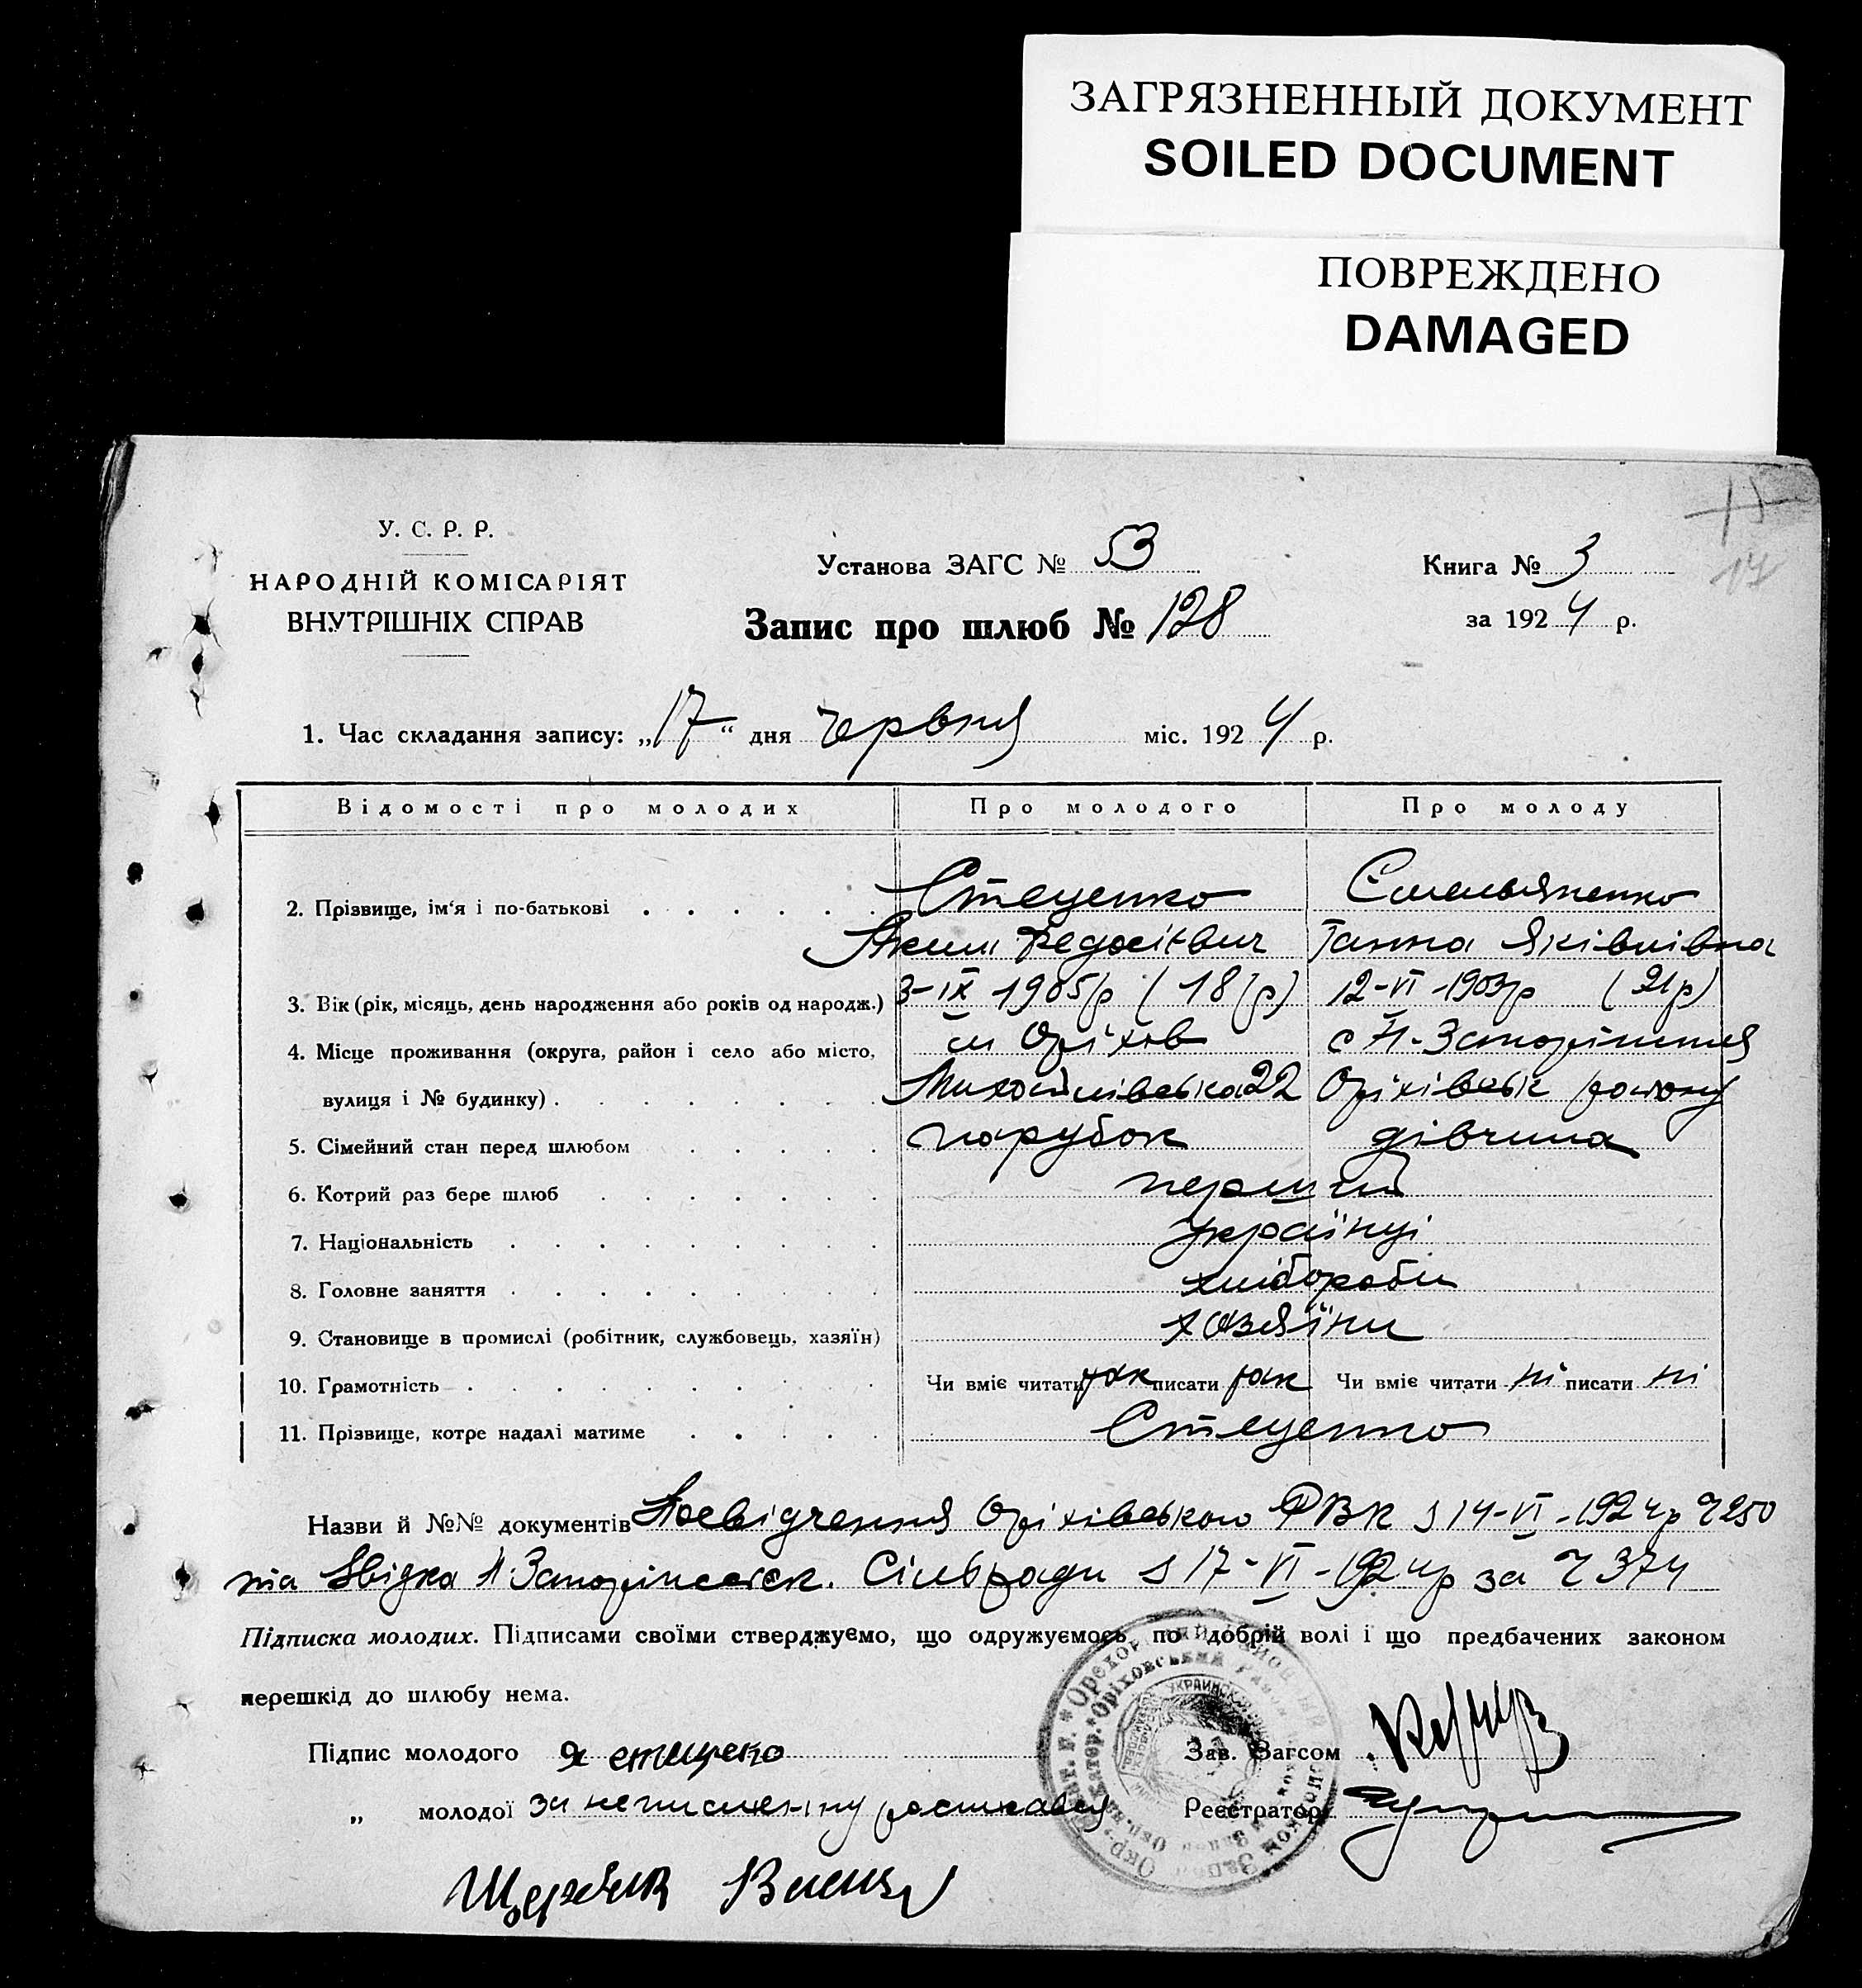 ЗАГРЯЗНЕННЫЙ ДОКУМЕНТ
SOILED DOCUMENT
ПОВРЕЖДЕНО
DAMAGED
17
У. С. Р. Р.
НАРОДНІЙ КОМІСАРІЯТ
ВНУТРІШНІХ СПРАВ
Установа ЗАГС № 53
Книга № 3
Запис про шлюб № 128
за 1924 р.
1. Час складання запису: „17“ дня червня міс. 1924 р.
Відомості про молодих Про молодого Про молоду
2. Прізвище, ім'я і по-батькові Стеценко Омельяненко
Яким Федосіївич Ганна Яківлівна
3. Вік (рік, місяць, день народження або років од народж.) 3-IX 1905р (18 р) 12-VI-1903р (21р)
4. Місце проживання (округа, район і село або місто, м Оріхів с Н-Запоріжжя
вулиця і № будинку) Михайлівська 22 Оріхівськ району
5. Сімейний стан перед шлюбом парубок дівчина
6. Котрий раз бере шлюб перший
7. Національність українці
8. Головне заняття хлібороби
9. Становище в промислі (робітник, службовець, хазяїн) хозяїни
10. Грамотність Чи вміє читати так писати так Чи вміє читати ні писати ні
11. Прізвище, котре надалі матиме Стеценко
Назви й №№ документів Посвідчення Оріхівського РВК з 14-VI-1924р Ч 250
та Звідка Н Запоріжськ. Сільради з 17-VI-1924р за Ч 374
Підписка молодих. Підписами своїми стверджуємо, що одружуємось по добрій волі і що предбачених законом
перешкід до шлюбу нема.
Підпис молодого Я стицено
Зав. Загсом
„ молодої за неписьменну росписався
Реєстратор